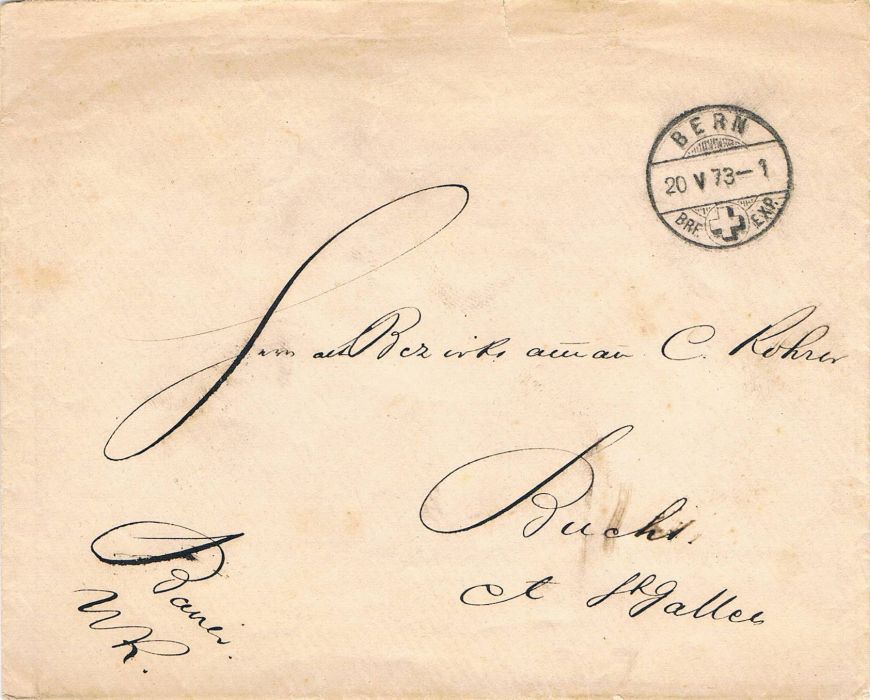 BERN
20 V 73-1
BRF. EXP.
Herr alt Bezirksam̄an C. Rohrer
Buchs.
Ct St Gallen
N.R.